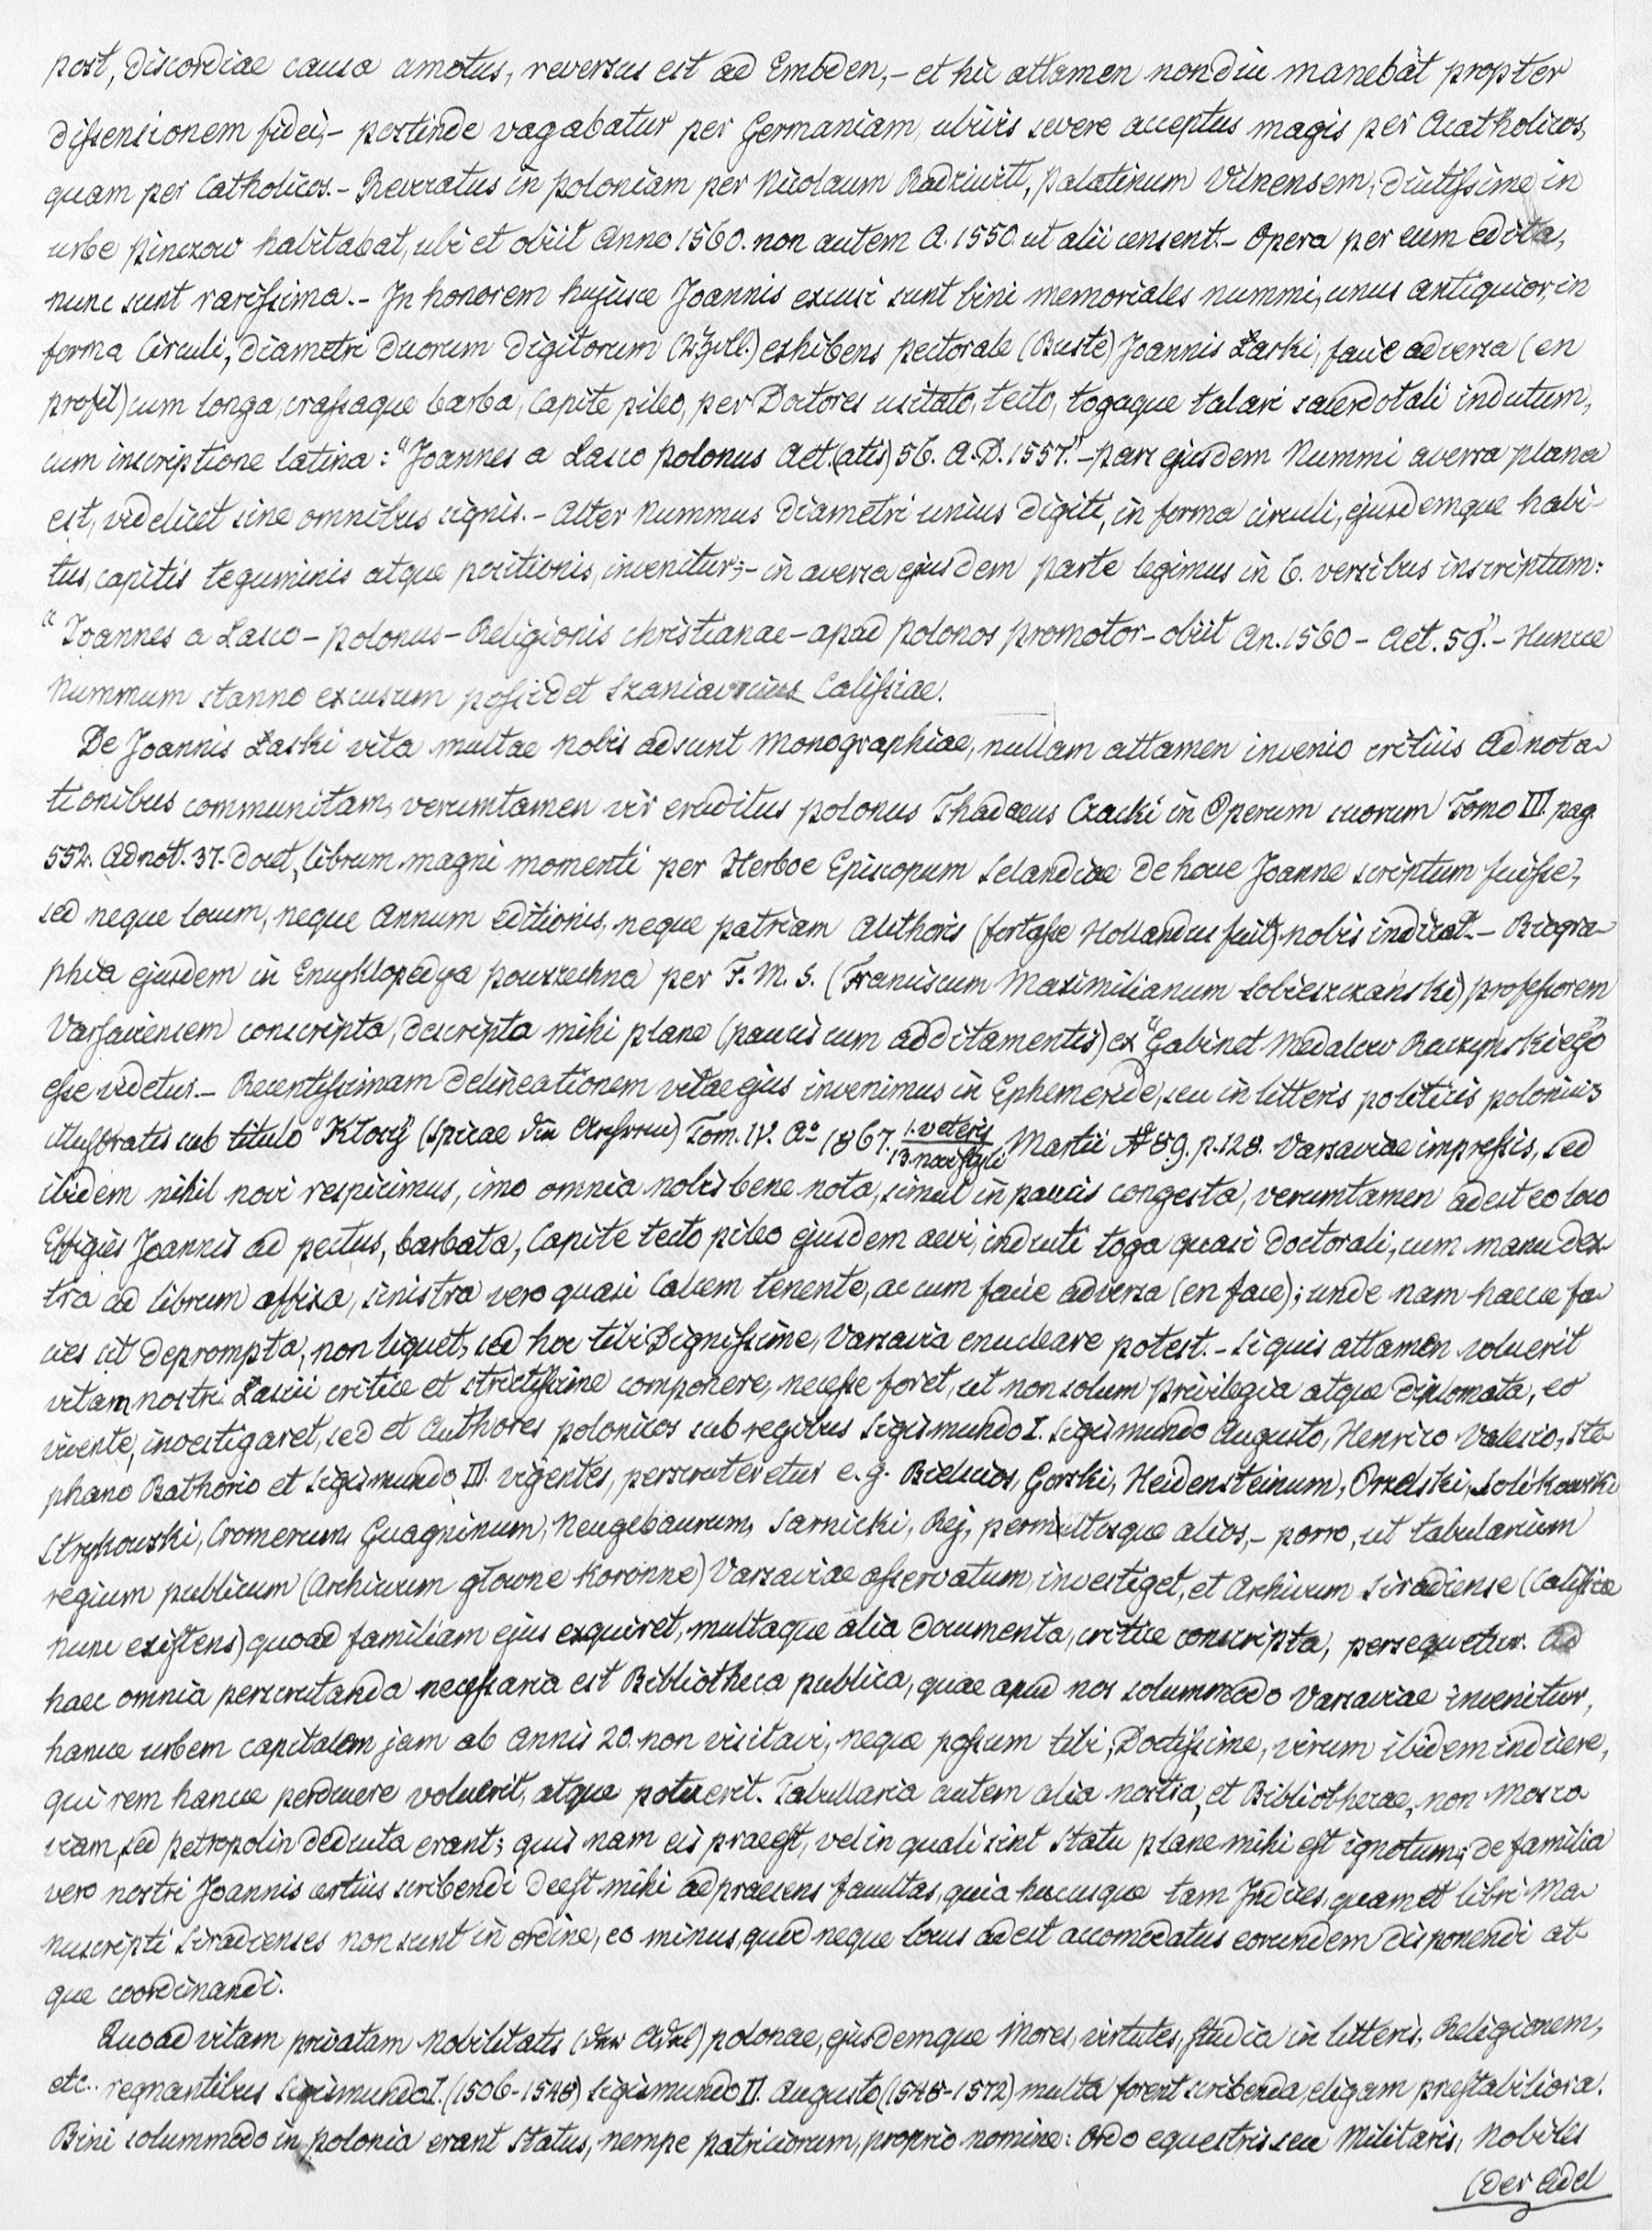 post, discordiae causa amotus, reversus est ad Embden, – et hic attamen non diu manebat propter
dissensionem fidei, – postinde vagabatur per Germaniam, ubivis severe acceptus magis per Acatholicos,
quam per Catholicos. – Reversatus in Poloniam per Nicolaum Radziwill, Palatinum Vilnensem, diutissime in
urbe Pinczow habitabat, ubi et obiit Anno 1560. non autem A. 1550 ut alii censent. – Opera per eum edita,
nunc sunt rarissima. – In honorem hujusce Joannis excusi sunt bini memoriales nummi, unus antiquior, in
forma Circuli, diametri duorum digitorum (2. Zoll.) exhibens pectorale (Buste) Joannis Łaski, facie adversa (en
profil) cum longa, crassaque barba, Capite pileo, per Doctores usitato, tecto, togaque talari sacerdotali indutum,
cum inscriptione latina: "Joannes a Lasco Polonus Aet.(atis) 56. A.D. 1557." – pars ejusdem Nummi aversa plana
est, videlicet sine omnibus signis. – Alter Nummus diametri unius digiti, in forma circuli, ejusdemque habi-
tus, capitis teguminis atque positionis, invenitur; – in aversa ejusdem parte legimus in 6. versibus inscriptum:
"Joannes a Lasco – Polonus – Religionis christianae – apud Polonos promotor – obiit An. 1560 – Aet. 59." – Huncce
Nummum stanno excusum possidet Szaniavscius Calissiae.
De Joannis Łaski vita multae nobis adsunt Monographiae, nullam attamen invenio criticis Adnota-
tionibus communitam, verumtamen vir eruditus polonus Thadaeus Czacki in Operum suorum Tomo III. pag.
552. Adnot. 37. docet, librum magni momenti per Herboe Episcopum Selandiae de hoce Joanne scriptum fuisse,
sed neque locum, neque Annum editionis, neque patriam Authoris (fortasse Hollandus fuit) nobis indicat. – Biogra-
phia ejusdem in Encyklopedya powszechna per F. M. S. (Franciscum Maximilianum Sobieszczański) professorem
Varsaviensem conscripta, descripta mihi plane (paucis cum additamentis) ex "Gabinet Medalow Raczynskiego"
esse videtur. – Recentissimam delineationem vitae ejus invenimus in Ephemeride, seu in litteris politicis polonicis
illustratis sub titulo "Kłosy" (Spicae die Aehren) Tom. IV. Ao 1867. 1. veteris / 13. novi styli Martii № 89. p. 128. Varsaviae impressis, sed
ibidem nihil novi respicimus, imo omnia nobis bene nota, simul in paucis congesta, verumtamen adest eo loco
Effigies Joannis ad pectus, barbata, Capite tecto pileo ejusdem aevi, induti toga quasi doctorali, cum manu dex-
tra ad librum affixa, sinistra vero quasi Calcem tenente, ac cum facie adversa (en face); unde nam haecce fa-
cies sit deprompta, non liquet, sed hoc tibi Dignissime, Varsavia enucleare potest. – Si quis attamen voluerit
vitam nostri Lascii critice et strictissime componere, necesse foret, ut non solum privilegia atque diplomata, eo
vivente, investigaret, sed et Authores polonicos sub regibus Sigismundo I. Sigismundo Augusto, Henrico Valesio, Ste-
phano Bathorio et Sigismundo III. vigentes, perscrutetetur e. g. Bielscios, Gorski, Heidensteinum, Orzelski, Solikowski
Strykowski, Cromerum, Guagninum, Neugebaurum, Sarnicki, Rej, permultosque alios, – porro, ut tabularium
regium publicum (Archiwum głowne Koronne) Varsaviae asservatum, investiget, et Archivum Siradiense (Calissiae
nunc existens) quoad familiam ejus exquiret, multaque alia documenta, critice conscripta, persequetur. Ad
haec omnia perscrutanda necessaria est Bibliotheca publica, quae apud nos solummodo Varsaviae invenitur,
hancce urbem capitalem jam ab Annis 20. non visitavi, neque possum tibi, Doctissime, virum ibidem indicere,
qui rem hancce perducere voluerit, atque potuerit. Tabullaria autem alia nostra, et Bibliothecae, non Mosco-
viam, sed Petropolin deducta erant; quis nam eis praeest, vel in quali sint Statu plane mihi est ignotum; de familia
vero nostri Joannis certius scribendi deest mihi ad praesens facultas, quia hucusque tam Indices, quam et libri Ma-
nuscripti Siradienses non sunt in ordine, eo minus, quod neque locus adest accomodatus eorundem disponendi at-
que coordinandi.
Quoad vitam privatam Nobilitatis (der Adel) polonae, ejusdemque Mores, virtutes, studia in litteris, Religionem,
etc. regnantibus Sigismundo I. (1506–1548) Sigismundo II. Augusto (1548–1572) multa forent scribenda, eligam prestabiliora.
Bini solummodo in Polonia erant Status, nempe patriciorum, proprio nomine: Ordo equestris seu Militaris, Nobiles
(der Adel